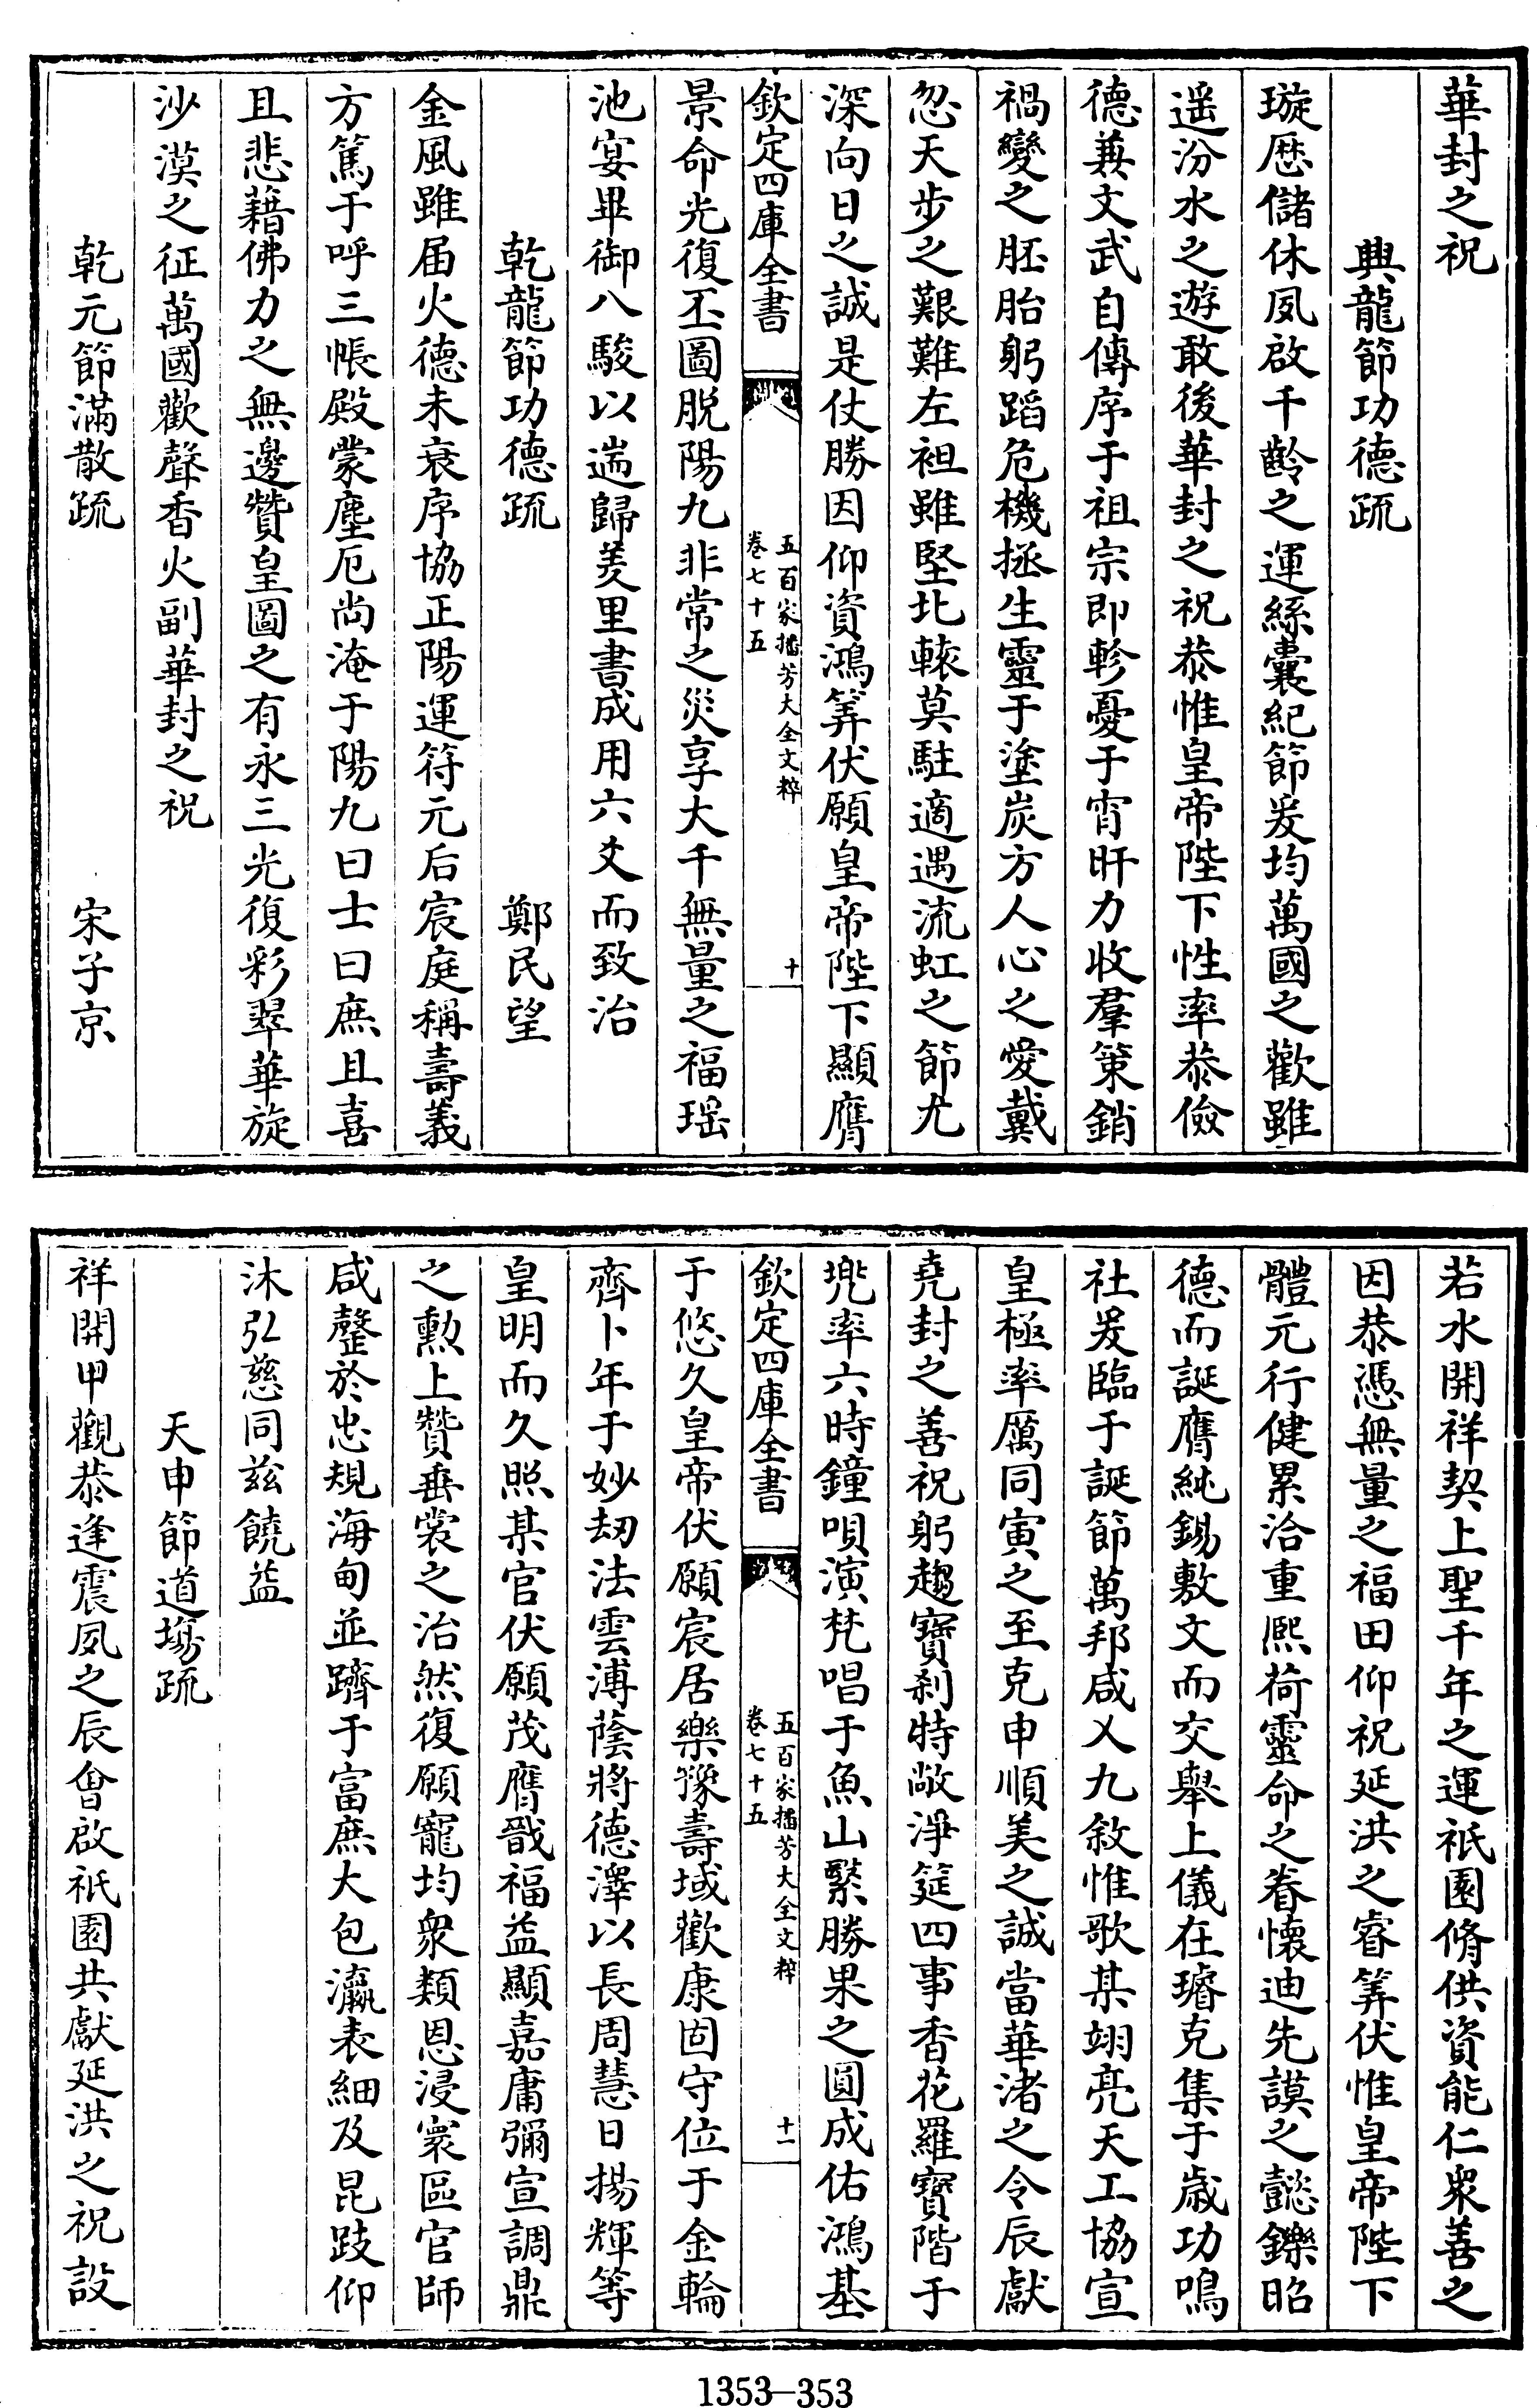 華封之祝
興龍節功德疏
璇厯儲休夙啟千齡之運絲囊紀節爰均萬國之歡雖
遥汾水之遊敢後華封之祝恭惟皇帝陛下性率恭儉
德兼文武自傳序于祖宗即軫憂于宵旰力收羣策銷
禍變之胚胎躬蹈危機拯生靈于塗炭方人心之愛戴
忽天步之艱難左袒雖堅北轅莫駐適遇流虹之節尤
深向日之誠是仗勝因仰資鴻筭伏願皇帝陛下顯膺
欽定四庫全書
五百家播芳大全文粹
卷七十五
十
景命光復丕圖脱陽九非常之災享大千無量之福瑶
池宴畢御八駿以遄歸羑里書成用六爻而致治
乾龍節功德疏 鄭民望
金風雖届火德未衰序協正陽運符元后宸庭稱壽義
方篤于呼三帳殿蒙塵厄尚淹于陽九曰士曰庶且喜
且悲藉佛力之無邊贊皇圖之有永三光復彩翠華旋
沙漠之征萬國歡聲香火副華封之祝
乾元節滿散疏 宋子京
若水開祥契上聖千年之運祇園脩供資能仁衆善之
因恭憑無量之福田仰祝延洪之睿筭伏惟皇帝陛下
體元行健累洽重熙荷靈命之眷懷迪先謨之懿鑠昭
德而誕膺純錫敷文而交舉上儀在璿克集于歲功鳴
社爰臨于誕節萬邦咸乂九敘惟歌某翊亮天工協宣
皇極率厲同寅之至克申順美之誠當華渚之令辰獻
堯封之善祝躬趨寶刹特敞淨筵四事香花羅寶階于
兜率六時鐘唄演梵唱于魚山緊勝果之圓成佑鴻基
欽定四庫全書
五百家播芳大全文粹
卷七十五
十一
于悠久皇帝伏願宸居樂豫壽域歡康固守位于金輪
齊卜年于妙刼法雲溥蔭將德澤以長周慧日揚輝等
皇明而久照某官伏願茂膺戩福益顯嘉庸彌宣調鼎
之勲上贊垂裳之治然復願寵均衆類恩浸寰區官師
咸罄於忠規海甸並躋于富庶大包瀛表細及昆蚑仰
沐弘慈同兹饒益
天申節道場疏
祥開甲觀恭逢震夙之辰會啟祇園共獻延洪之祝設
1353—353